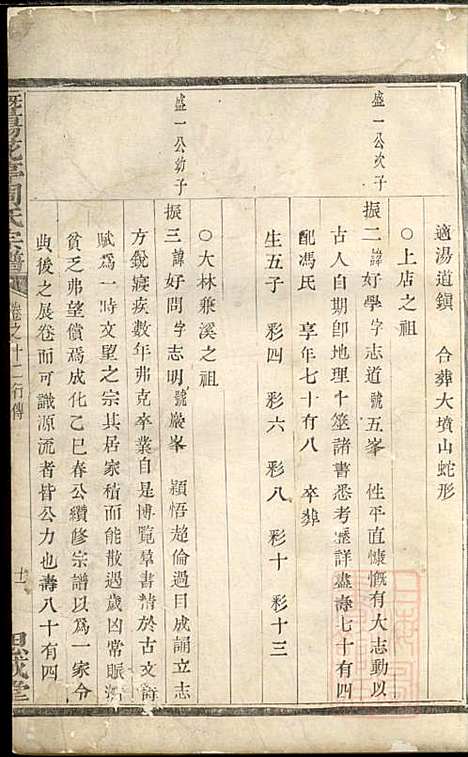 適湯道鎮　合葬大墳山蛇形
○上店之祖
盛一公次子
振二諱好學字志道號五峯　性平直慷慨有大志動以
古人自期卽地理卜筮諸書悉考歷詳盡壽七十有四
配馮氏　享年七十有八　卒葬
生五子　彩四　彩六　彩八　彩十　彩十三
○大林兼溪之祖
盛一公幼子
振三諱好問字志明號巖峯　穎悟超倫過目成誦立志
方銳寢疾數年弗克卒業自是博覽羣書精於古文詩
賦爲一時文望之宗其居家積而能散遇歲凶常賑濟
貧乏弗望償焉成化乙巳春公纘修宗譜以爲一家令
典後之展卷而可識源流者皆公力也壽八十有四
暨陽花亭周氏宗譜　卷之十二行傳　思成堂